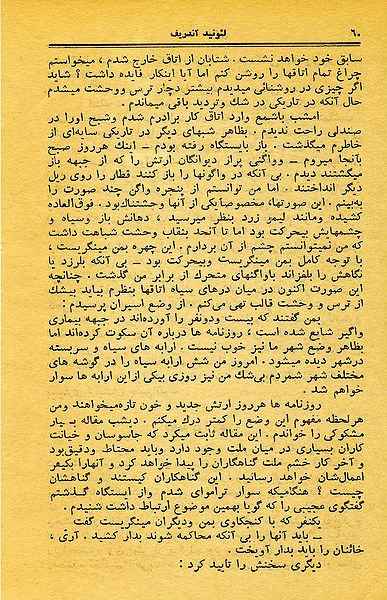 ۶۰
لئونید آندریف
سابق خود خواهد نشست . شتابان از اتاق خارج شدم ، میخواستم
چراغ تمام اتاقها را روشن کنم اما آیا اینکار فایده داشت ؟ شاید
اگر چیزی در روشنائی میدیدم بیشتر دچار ترس و وحشت میشدم
حال آنکه در تاریکی در شك و تردید باقی میماندم .
امشب باشمع وارد اتاق کار برادرم شدم وشبح اورا در
صندلی راحت ندیدم . بظاهر شبهای دیگر در تاریکی سایه‌ای از
خاطرم میگذشت . باز بایستگاه رفته بودم – اینك هرروز صبح
بآنجا میروم – وواگنی پراز دیوانگان ارتش را که از جبهه باز
میگشتند دیدم . بی آنکه در واگونها را باز کنند قطار را روی ریل
دیگر انداختند . اما من توانستم از پنجره واگن چند صورت را
به‌بینم . این صورتها، مخصوصاً یکی از آنها وحشتناك‌بود . فوق‌العاده
کشیده ومانند لیمو زرد بنظر میرسید ، دهانش باز وسیاه و
چشمهایش بیحرکت بود اما تا آنحد بنقاب وحشت شباهت داشت
که من نمیتوانستم چشم از آن بردارم . این چهره بمن مینگریست ،
با توجه کامل بمن مینگریست وبیحرکت بود – بی آنکه بلرزد یا
نگاهش را بلغزاند باواگنهای متحرك از برابر من گذشت . چنانچه
این صورت اکنون در میان درهای سیاه اتاقها بنظرم بیاید بیشك
از ترس و وحشت قالب تهی می‌کنم . از وضع اسیران پرسیدم :
بمن گفتند که بیست ودونفر را آورده‌اند در جبهه بیماری
واگیر شایع شده است ، روزنامه ها درباره آن سکوت کرده‌اند اما
بظاهر وضع شهر ما نیز خوب نیست . ارابه های سیاه و سربسته
درشهر دیده میشود . امروز من شش ارابه سیاه را در گوشه های
مختلف شهر شمردم بی‌شك من نیز روزی بیکی ازاین ارابه ها سوار
خواهم شد .
روزنامه ها هرروز ارتش جدید و خون تازه‌میخواهند ومن
هرلحظه مفهوم این وضع را کمتر درك میکنم . دیشب مقاله بسیار
مشکوکی را خواندم . این مقاله ثابت میکرد که جاسوسان و خیانت
کاران بسیاری در میان ملت وجود دارد وباید محتاط ودقیق‌بود
و آخر کار خشم ملت گناهگاران را پیدا خواهد کرد و آنهارا بکیفر
اعمال‌شان خواهد رسانید . این گناهکاران کیستند و گناهشان
چیست ؟ هنگامیکه سوار تراموای شدم واز ایستگاه گذشتم
گفتگوی عجیبی را که گویا بهمین موضوع ارتباط داشت شنیدم .
یکنفر که با کنجکاوی بمن ودیگران مینگریست گفت
– باید آنها را بی آنکه محاکمه شوند بدار کشید . آری ،
خائنان را باید بدار آویخت .
دیگری سخنش را تایید کرد :